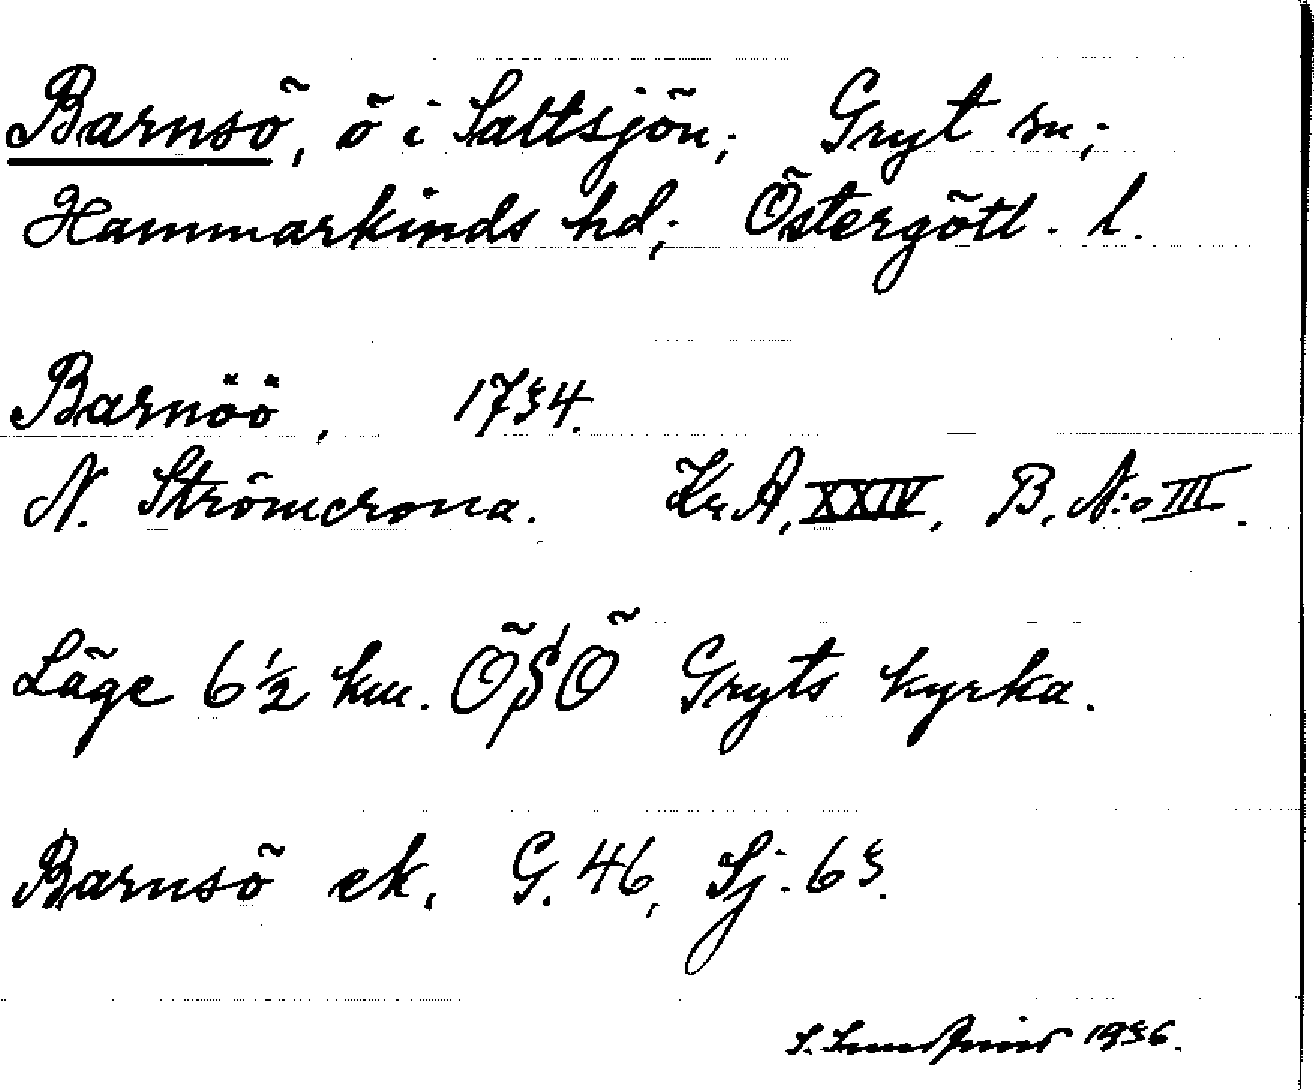 Barnsö, ö i Saltsjön; Gryt sn;
Hammarkinds hd; Östergötl. l.
Barnöö, 1734.
N. Strömcrona. Kr.A, XXIV, B, N:o III.
Läge 6 1/2 km. ÖSÖ Gryts kyrka.
Barnsö ek. G. 46, Sj. 63.
S. 1936.